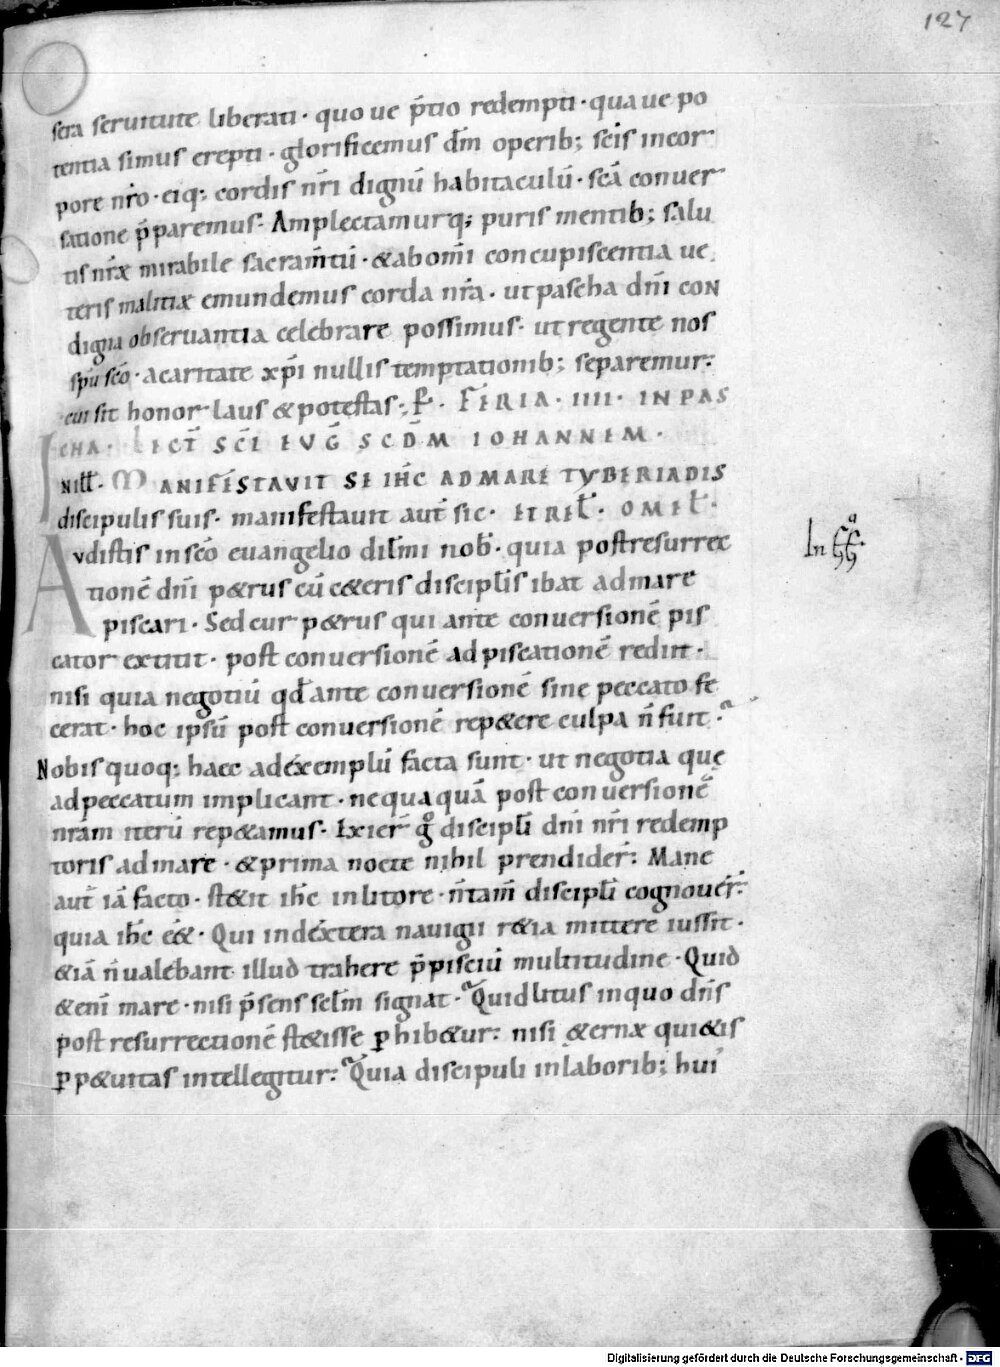 127
sera seruitute liberati · quo ue p̄tio redempti · qua ue po
tentia simus erepti · glorificemus dm̄ operib; scis in cor
pore nr̄o · eiq; cordis nr̄i dignū habitaculū · scā conuer
satione p̄paremus · Amplectamurq; puris mentib; salu
tis nr̄æ mirabile sacram̄tū · & ab om̄i concupiscentia ue
teris malitiæ emundemus corda nr̄a · ut pascha dn̄i con
digna obseruantia celebrare possimus · ut regente nos
spū sc̄o · a caritate xp̄i nullis temptationib; separemur:
cui sit honor laus & potestas · FERIA · IIII · IN PAS
CHA · LECT̄ SC̄I EVḠ SCDM̄ IOHANNEM ·
MANIFESTAVIT SE IHC̄ AD MARE TYBERIADIS
discipulis suis · manifestauit aut̄ sic · ET REL̄ · OMEL̄ ·
Audistis in sc̄o euangelio dil̄mi nob̄ · quia post resurrec
tionē dn̄i p&rus cū c&eris discipl̄is ibat ad mare
piscari · Sed cur p&rus qui ante conuersionē pis
cator extitit · post conuersionē ad piscationē rediit ·
In
nisi quia negotiū qd̄ ante conuersionē sine peccato fe
cerat · hoc ipsū post conuersionē rep&ere culpa n̄ fuit ·
Nobis quoq; haec ad exemplū facta sunt · ut negotia quę
ad peccatum implicant · nequaquā post conuersionē
nram̄ iterū rep&amus · Exier̄ g° discipl̄i dn̄i nr̄i redemp
toris ad mare · & prima nocte nihil prendider̄: Mane
aut̄ iā facto · st&it ihc̄ in litore · n̄ tam̄ discipl̄i cognouer̄:
quia ihc̄ e&· Qui in dextera nauigii r&ia mittere iussit ·
& iā n̄ ualebant illud trahere p̄ pisciū multitudine · Quid
& eni̅ mare · nisi p̄sens scl̄m signat · Quid litus in quo dn̄s
post resurrectionē st&isse phib&ur: nisi &ernæ qui&is
pp&uitas intellegitur: Quia discipuli in laborib; hui'
Digitalisierung gefördert durch die Deutsche Forschungsgemeinschaft - DFG